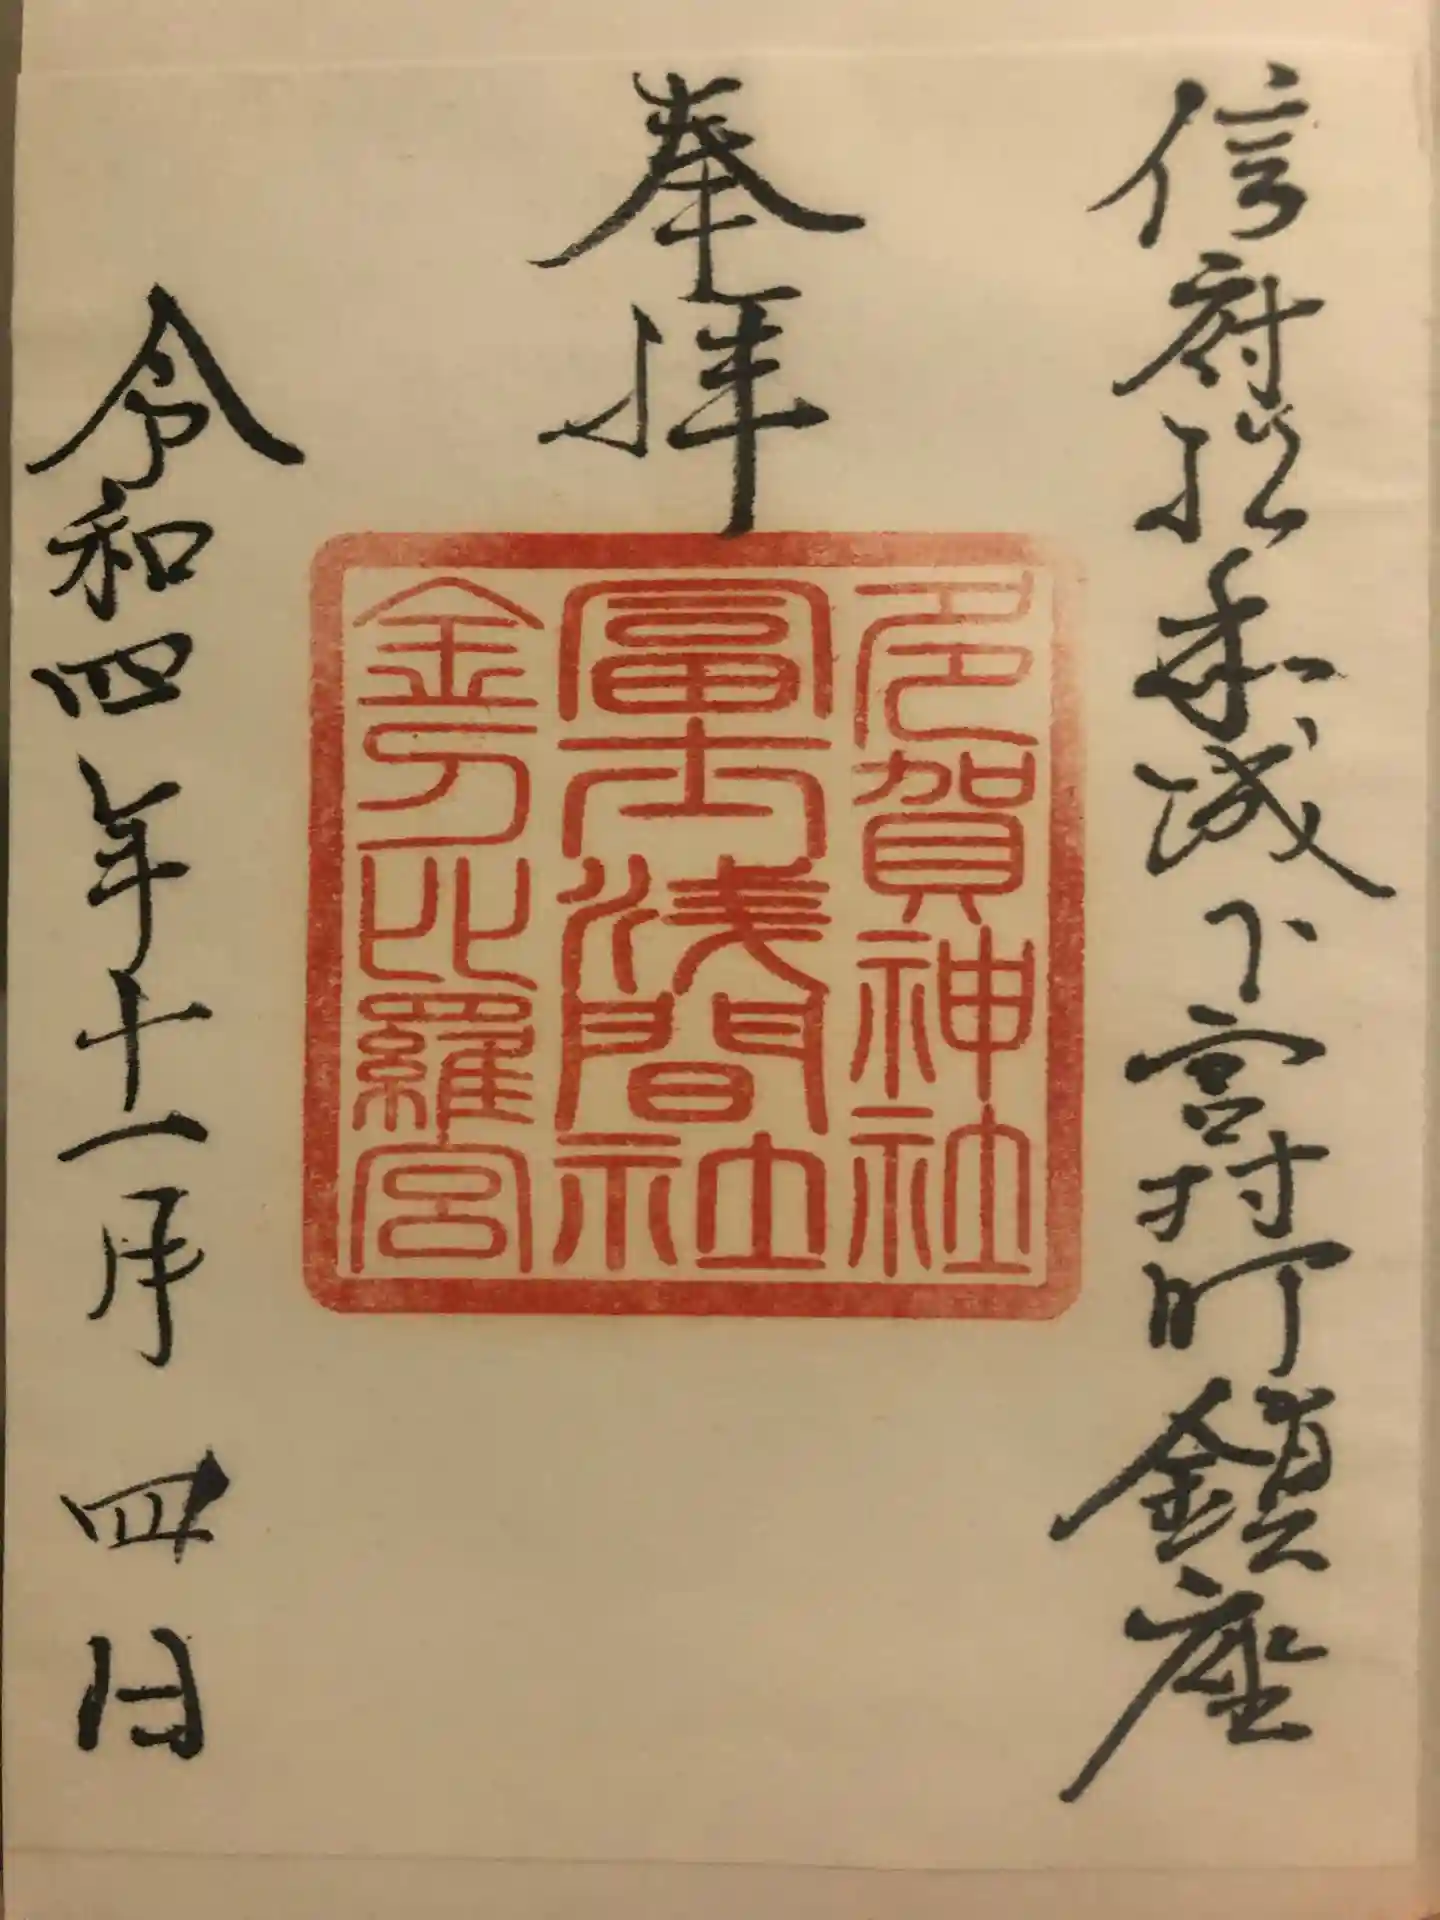 信府松本城下宮村町鎮座
奉拝
多賀神社
冨士浅間社
金刀比羅宮
令和四年十一月四日